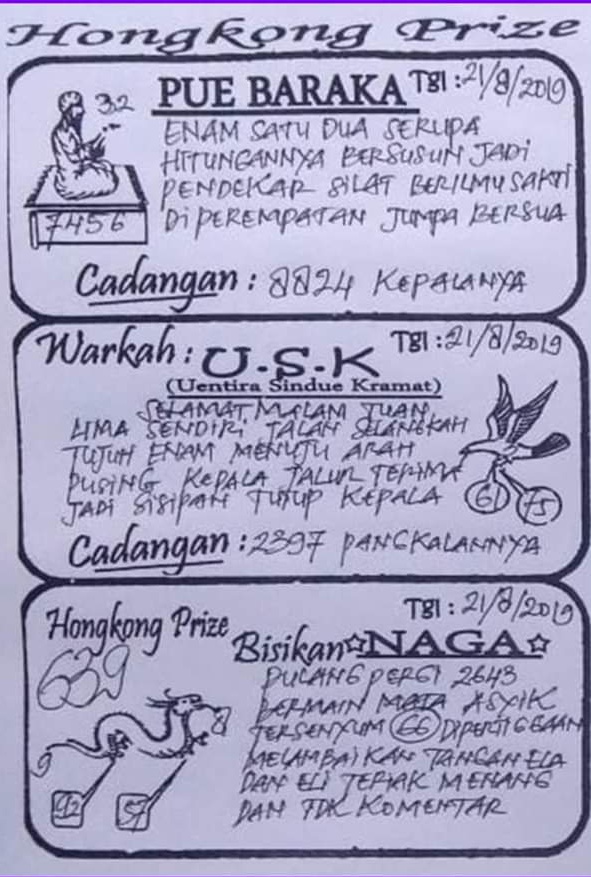 Hongkong Prize
PUE BARAKA Tgl : 21/8/2019
32
ENAM SATU DUA SERUPA
HITUNGANNYA BERSUSUN JADI
PENDEKAR SILAT BERILMU SAKTI
DIPEREMPATAN JUMPA BERSUA
7456
Cadangan : 8824 KEPALANYA
Warkah : U.S.K Tgl : 21/8/2019
(Uentira Sindue Kramat)
SELAMAT MALAM TUAN
LIMA SENDIRI JALAN SELANGKAH
TUJUH ENAM MENUJU ARAH
PUSING KEPALA JALUR TERIMA
JADI SISIPAN TUTUP KEPALA
61 75
Cadangan : 2397 PANGKALANNYA
Tgl : 21/8/2019
Hongkong Prize
Bisikan ☆NAGA☆
639
PULANG PERGI 2643
BERMAIN MATA ASYIK
TERSENYUM 66 DIPERTIGAAN
MELAMBAIKAN TANGAN ELA
DAN ELI TERIAK MENANG
DAN TDK KOMENTAR
8
9
92 57